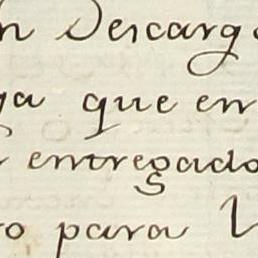 n Descarg
ga que en
entregado
ro para V